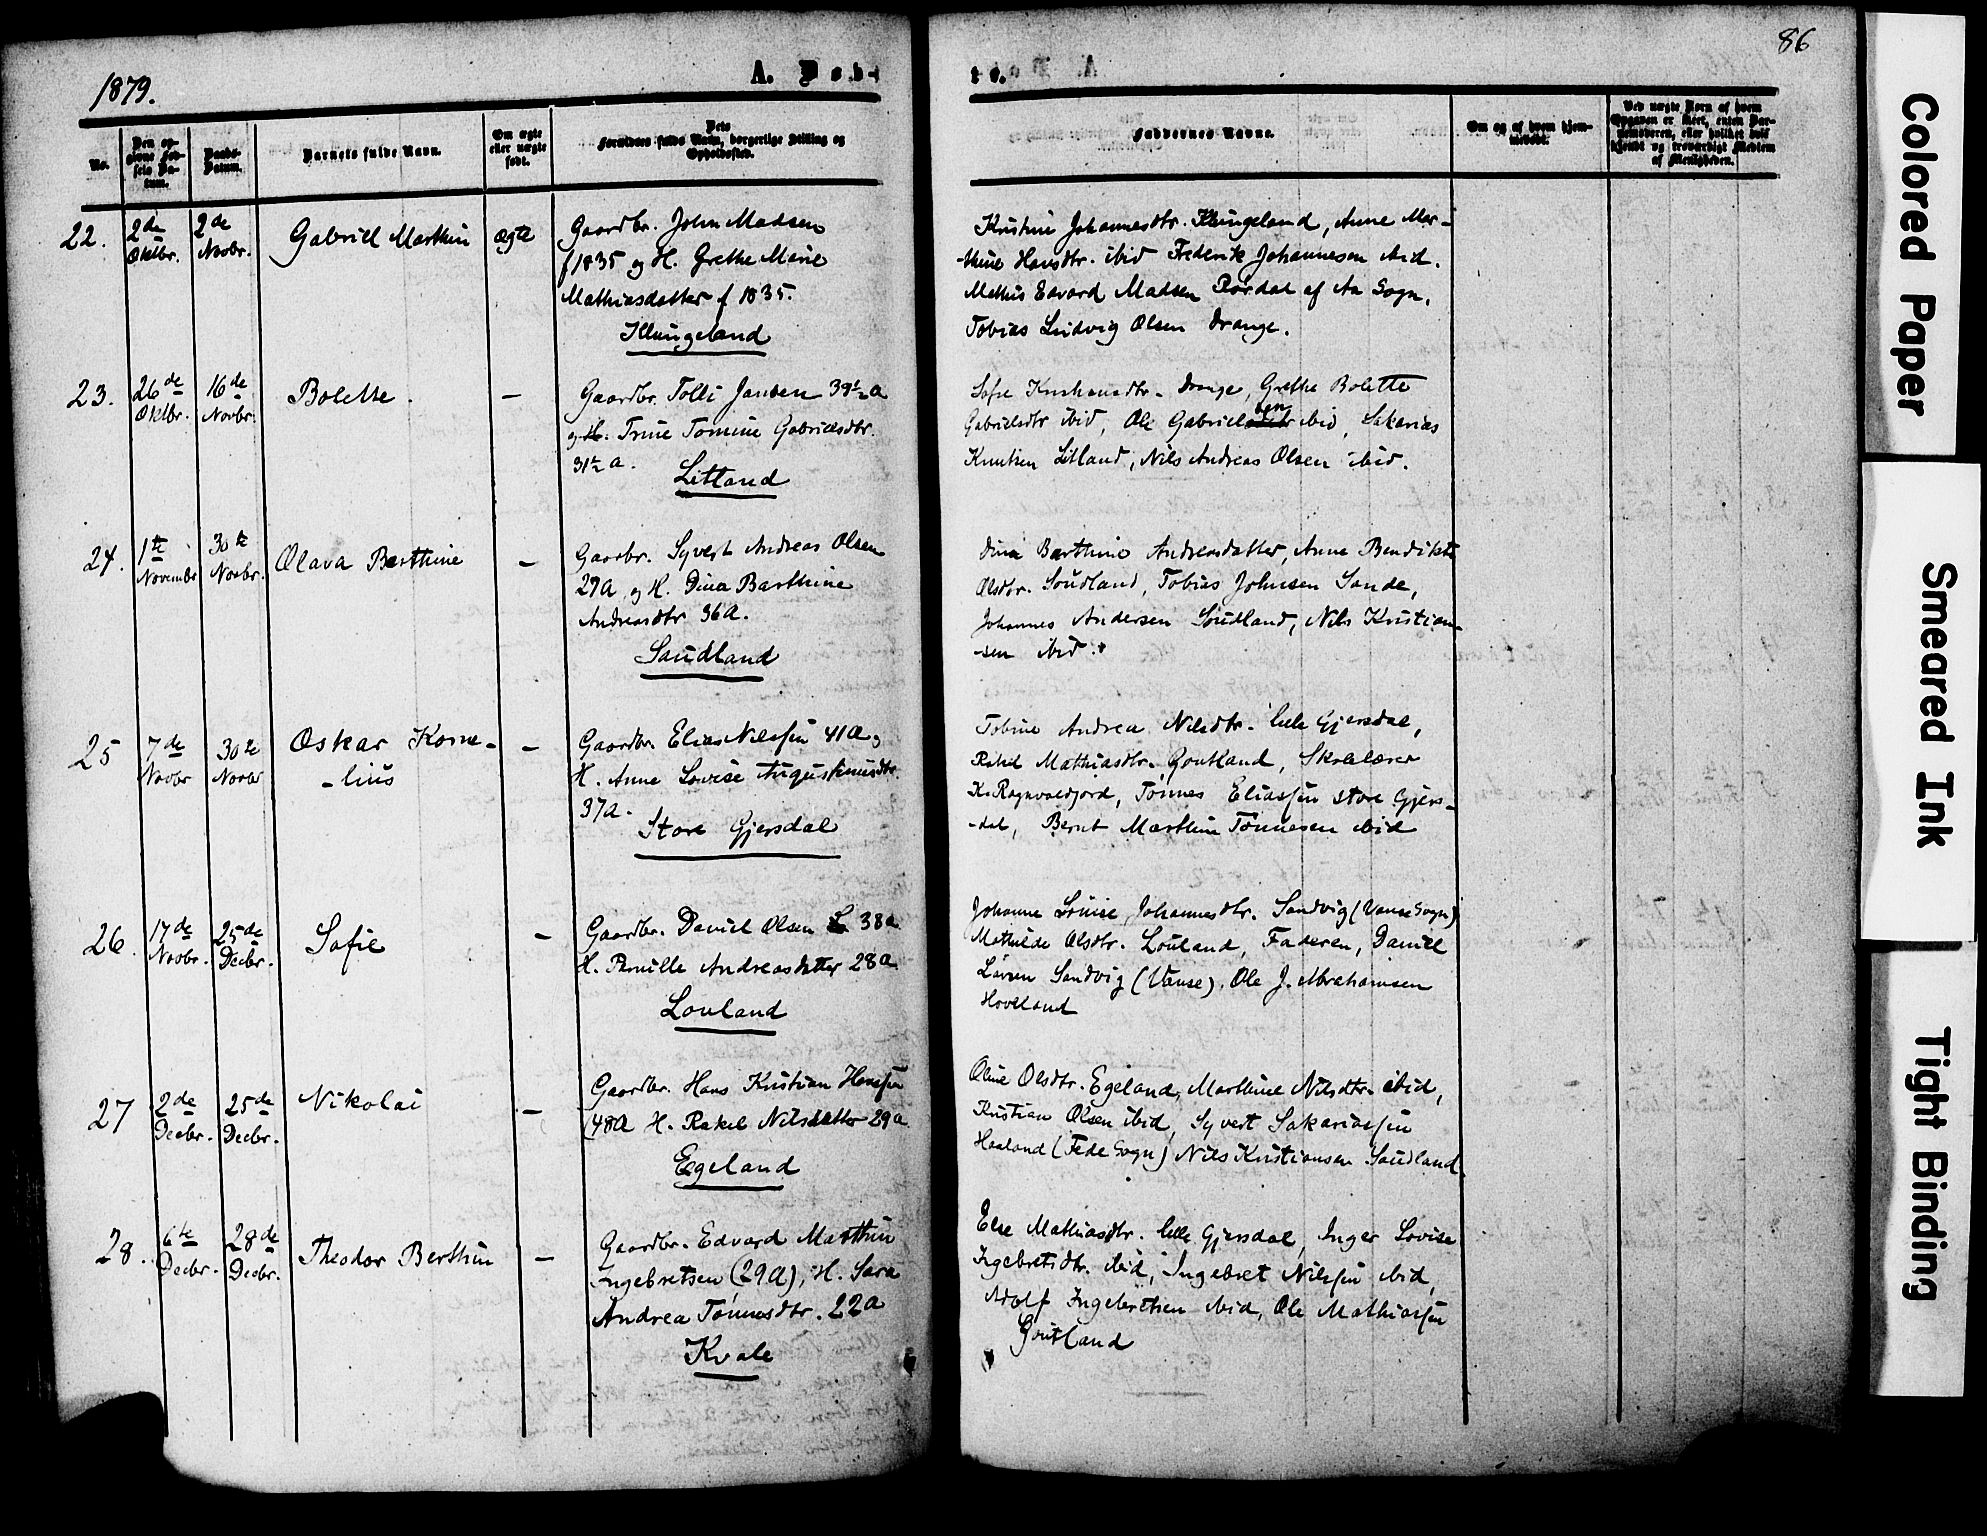 1879.
A. Døb-
te.
86
No.
Den op-
givne Fød-
sels Da-
tum.
Daabs-
Datum.
Barnets fulde Navn.
Om ægte
eller uægte
født.
Dets
Forældres fulde Navn, borgerlige Stilling og
Opholdssted.
Faddernes Navne.
Om og af hvem hjem-
medøbt.
Ved uægte Børn af hvem
Opgaven er skeet, enten Bar-
nemoderen, eller hvilket hvis
kjendt og troværdigt Medlem
af Menigheden.
22.
2de
Oktbr.
2de
Novbr.
Gabriel Marthin
ægte
Gaardbr. John Madsen
f 1835 og H. Grethe Marie
Mathiasdatter f 1835.
Klungeland
Kristine Johannesdtr. Klungeland, Anne Mar-
-thine Hansdtr. ibid Frederik Johannesen ibid.
Mathis Edvard Madsen Rørdal af Aa Sogn.
Tobias Ludvig Olsen Drange.
23.
26de
Oktbr.
16de
Novbr.
Bolette.
–
Gaardbr. Tolli Jansen 39½ a
og H. Trine Tomine Gabrielsdtr.
31½ a.
Litland
Sofie Drange, Grethe Bolette
Gabrielsdtr ibid, Ole Gabrielsen ibid, Sakarias
Knutsen Litland, Nils Andreas Olsen ibid.
24.
1te
Novembr
30te
Novbr.
Olava Berthine
–
Gaardbr. Syvert Andreas Olsen
29a og H. Dina Barthine
Andreasdtr 36a.
Saudland
Dina Barthine Andreasdatter, Anne Bendikte
Olsdtr. Saudland, Tobias Johnsen Sande,
Johannes Andersen Saudland, Nils Kristian-
-sen ibid.
25
7de
Novbr
30te
Novbr
Oskar Korne-
-lius
–
Gaardbr. Elias Nilssen 41a og
H. Anne Lovise Augustinusdtr.
37a.
Store Gjersdal
Tobine Andrea Nilsdtr. lille Gjersdal,
Rakel Mathiasdtr. Goutland, Skolelærer
K. Ragnvaldjord, Tønnes Eliassen store Gjers-
-dal, Bernt Marthin Tønnesen ibid
26.
17de
Novbr.
25de
Decbr.
Sofie
–
Gaardbr. Daniel Olsen 38a
H. Pernille Andreasdatter 28a
Louland
Johanne Lovise Johannesdtr. Sandvig (Vanse Sogn)
Mathilde Olsdtr. Louland, Faderen, Daniel
Larsen Sandvig (Vanse). Ole J. Abrahamsen
Hovland
27
2de
Decbr.
25de
Decbr.
Nikolai
–
Gaardbr. Hans Kristian Hanssen
(48a H. Rakel Nilsdatter 29a
Egeland
Oline Olsdtr. Egeland, Marthine Nilsdtr. ibid,
Kristian Olsen ibid, Syvert Sakariassen
Haaland (Fede Sogn) Nils Kristiansen Saudland.
28.
6te
Decbr.
28de
Decbr.
Theodor Berthin
–
Gaardbr. Edvard Marthin
Ingebretsen (29a), H. Sara
Andrea Tønnesdtr. 22a
Kvale
Else Mathiasdtr. lille Gjersdal, Inger Lovise
Ingebretsdtr. ibid, Ingebret Nilssen ibid,
Adolf Ingebretsen ibid, Ole Mathiassen
Goutland
Colored Paper
Smeared Ink
Tight Binding